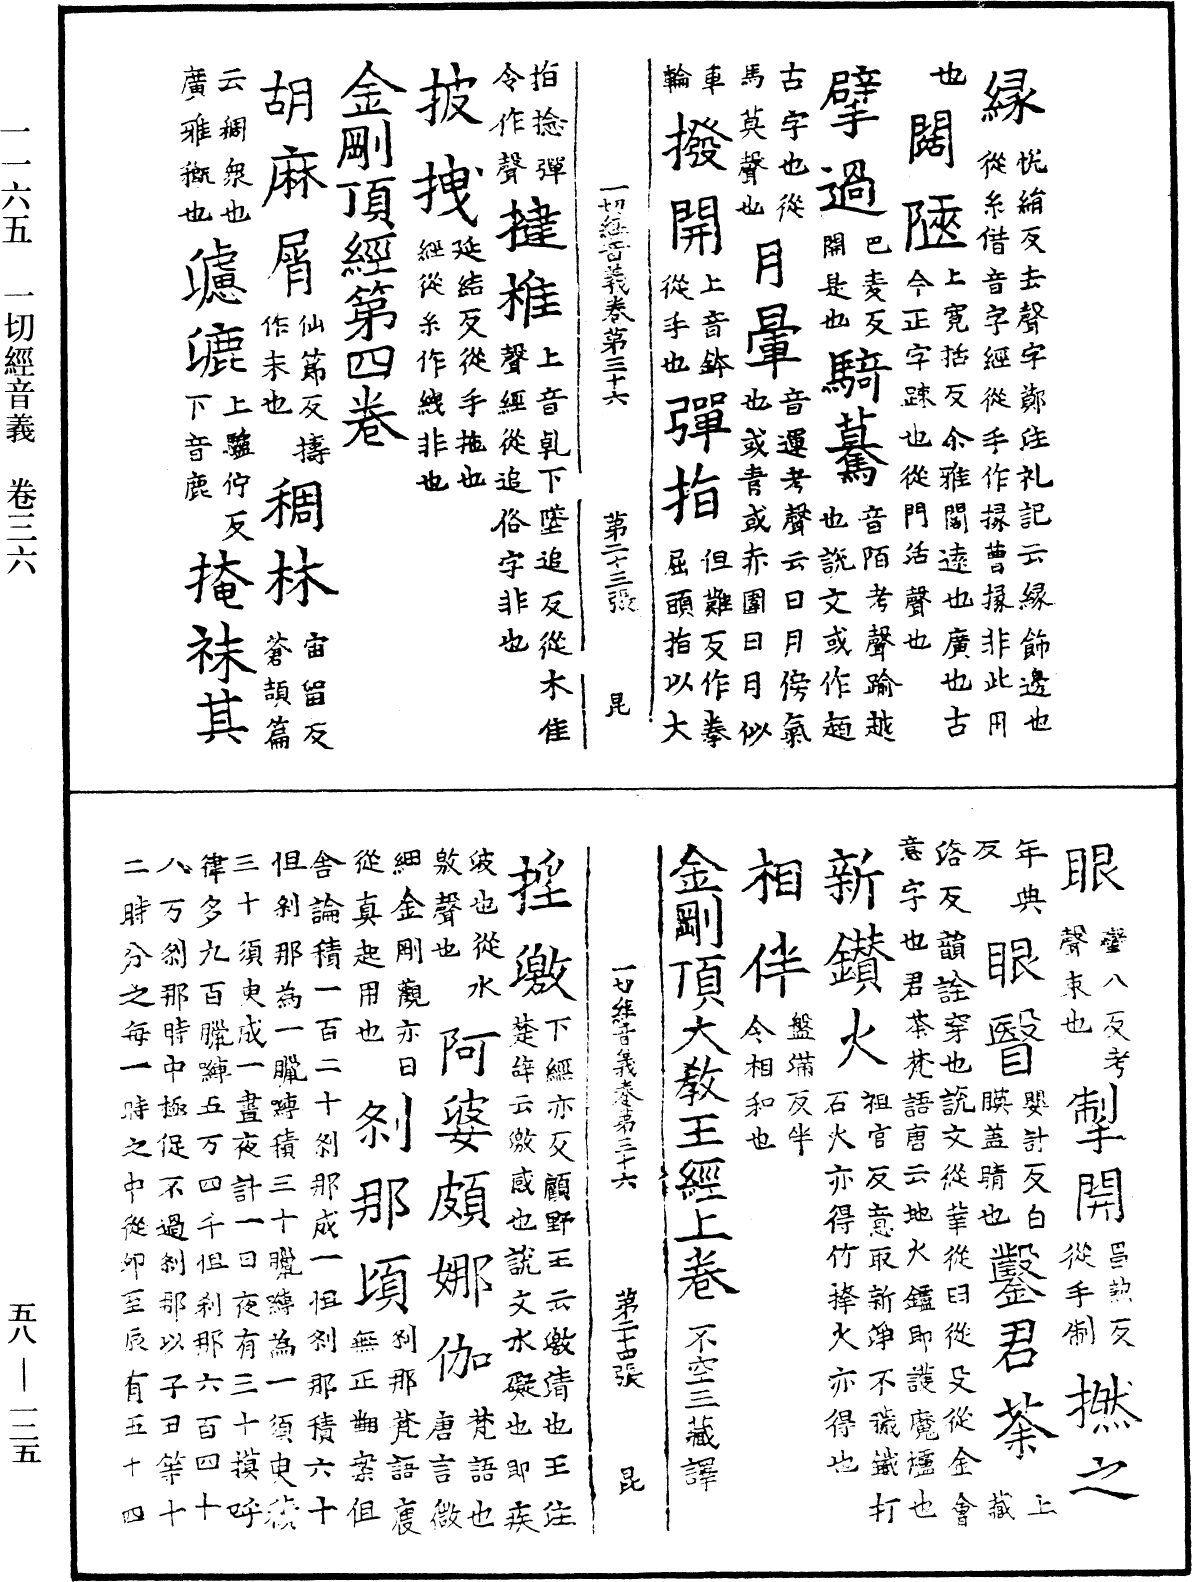 一一六五　一切經音義　卷三六
五八—一二五
緣 悅絹反去聲字鄭注礼記云緣飾邊也
從糸借音字經從手作掾曹掾非此用
也 闊陿 上寬括反尒雅闊遠也廣也古
今正字踈也從門活聲也
擘過 巴麦反
開是也 騎驀 音陌考聲踰越
也說文或作趏
古字也從
馬莫聲也 月暈 音運考聲云日月傍氣
也或青或赤圍日月似
車
輪 撥開 上音鉢
從手也 彈指 但難反作拳
屈頭指以大
一切經音義卷第三十六　第二十三張　昆
拍捻彈
令作聲 揵椎 上音乹下墜追反從木隹
聲經從追俗字非也
披拽 延結反從手拖也
經從糸作緤非也
金剛頂經第四卷
胡麻屑 仙節反擣
作末也 稠林 宙留反
蒼頡篇
云稠衆也
廣雅穊也 㯭漉 上驢佇反
下音鹿 掩袜其
眼 蠻八反考
聲束也 掣開 昌熱反
從手制 撚之
年典
反 眼瞖 嬰計反白
膜蓋睛也 鑿君荼 上
藏
洛反韻詮穿也說文從丵從臼從殳從金會
意字也君荼梵語唐云地火鑪即護魔爐也
新鑽火 祖官反意取新淨不穢鐵打
石火亦得竹捧火亦得也
相伴 盤滿反半
今相和也
金剛頂大教王經上卷 不空三藏譯
一切經音義卷第三十六　第二十四張　昆
揘激 下經亦反顧野王云激清也王注
楚辝云激感也說文水礙也即疾
波也從水
敫聲也 阿娑頗娜伽 梵語也
唐言微
細金剛觀亦曰
從真起用也 剎那頃 剎那梵語𢈔
無正翻案俱
舍論積一百二十剎那成一怛剎那積六十
怛剎那為一臘縛積三十臘縛為一須臾積
三十須臾成一晝夜計一日夜有三十摸呼
律多九百臘縛五万四千怛剎那六百四十
八万剎那時中極促不過剎那以子丑等十
二時分之每一時之中從卯至辰有五十四